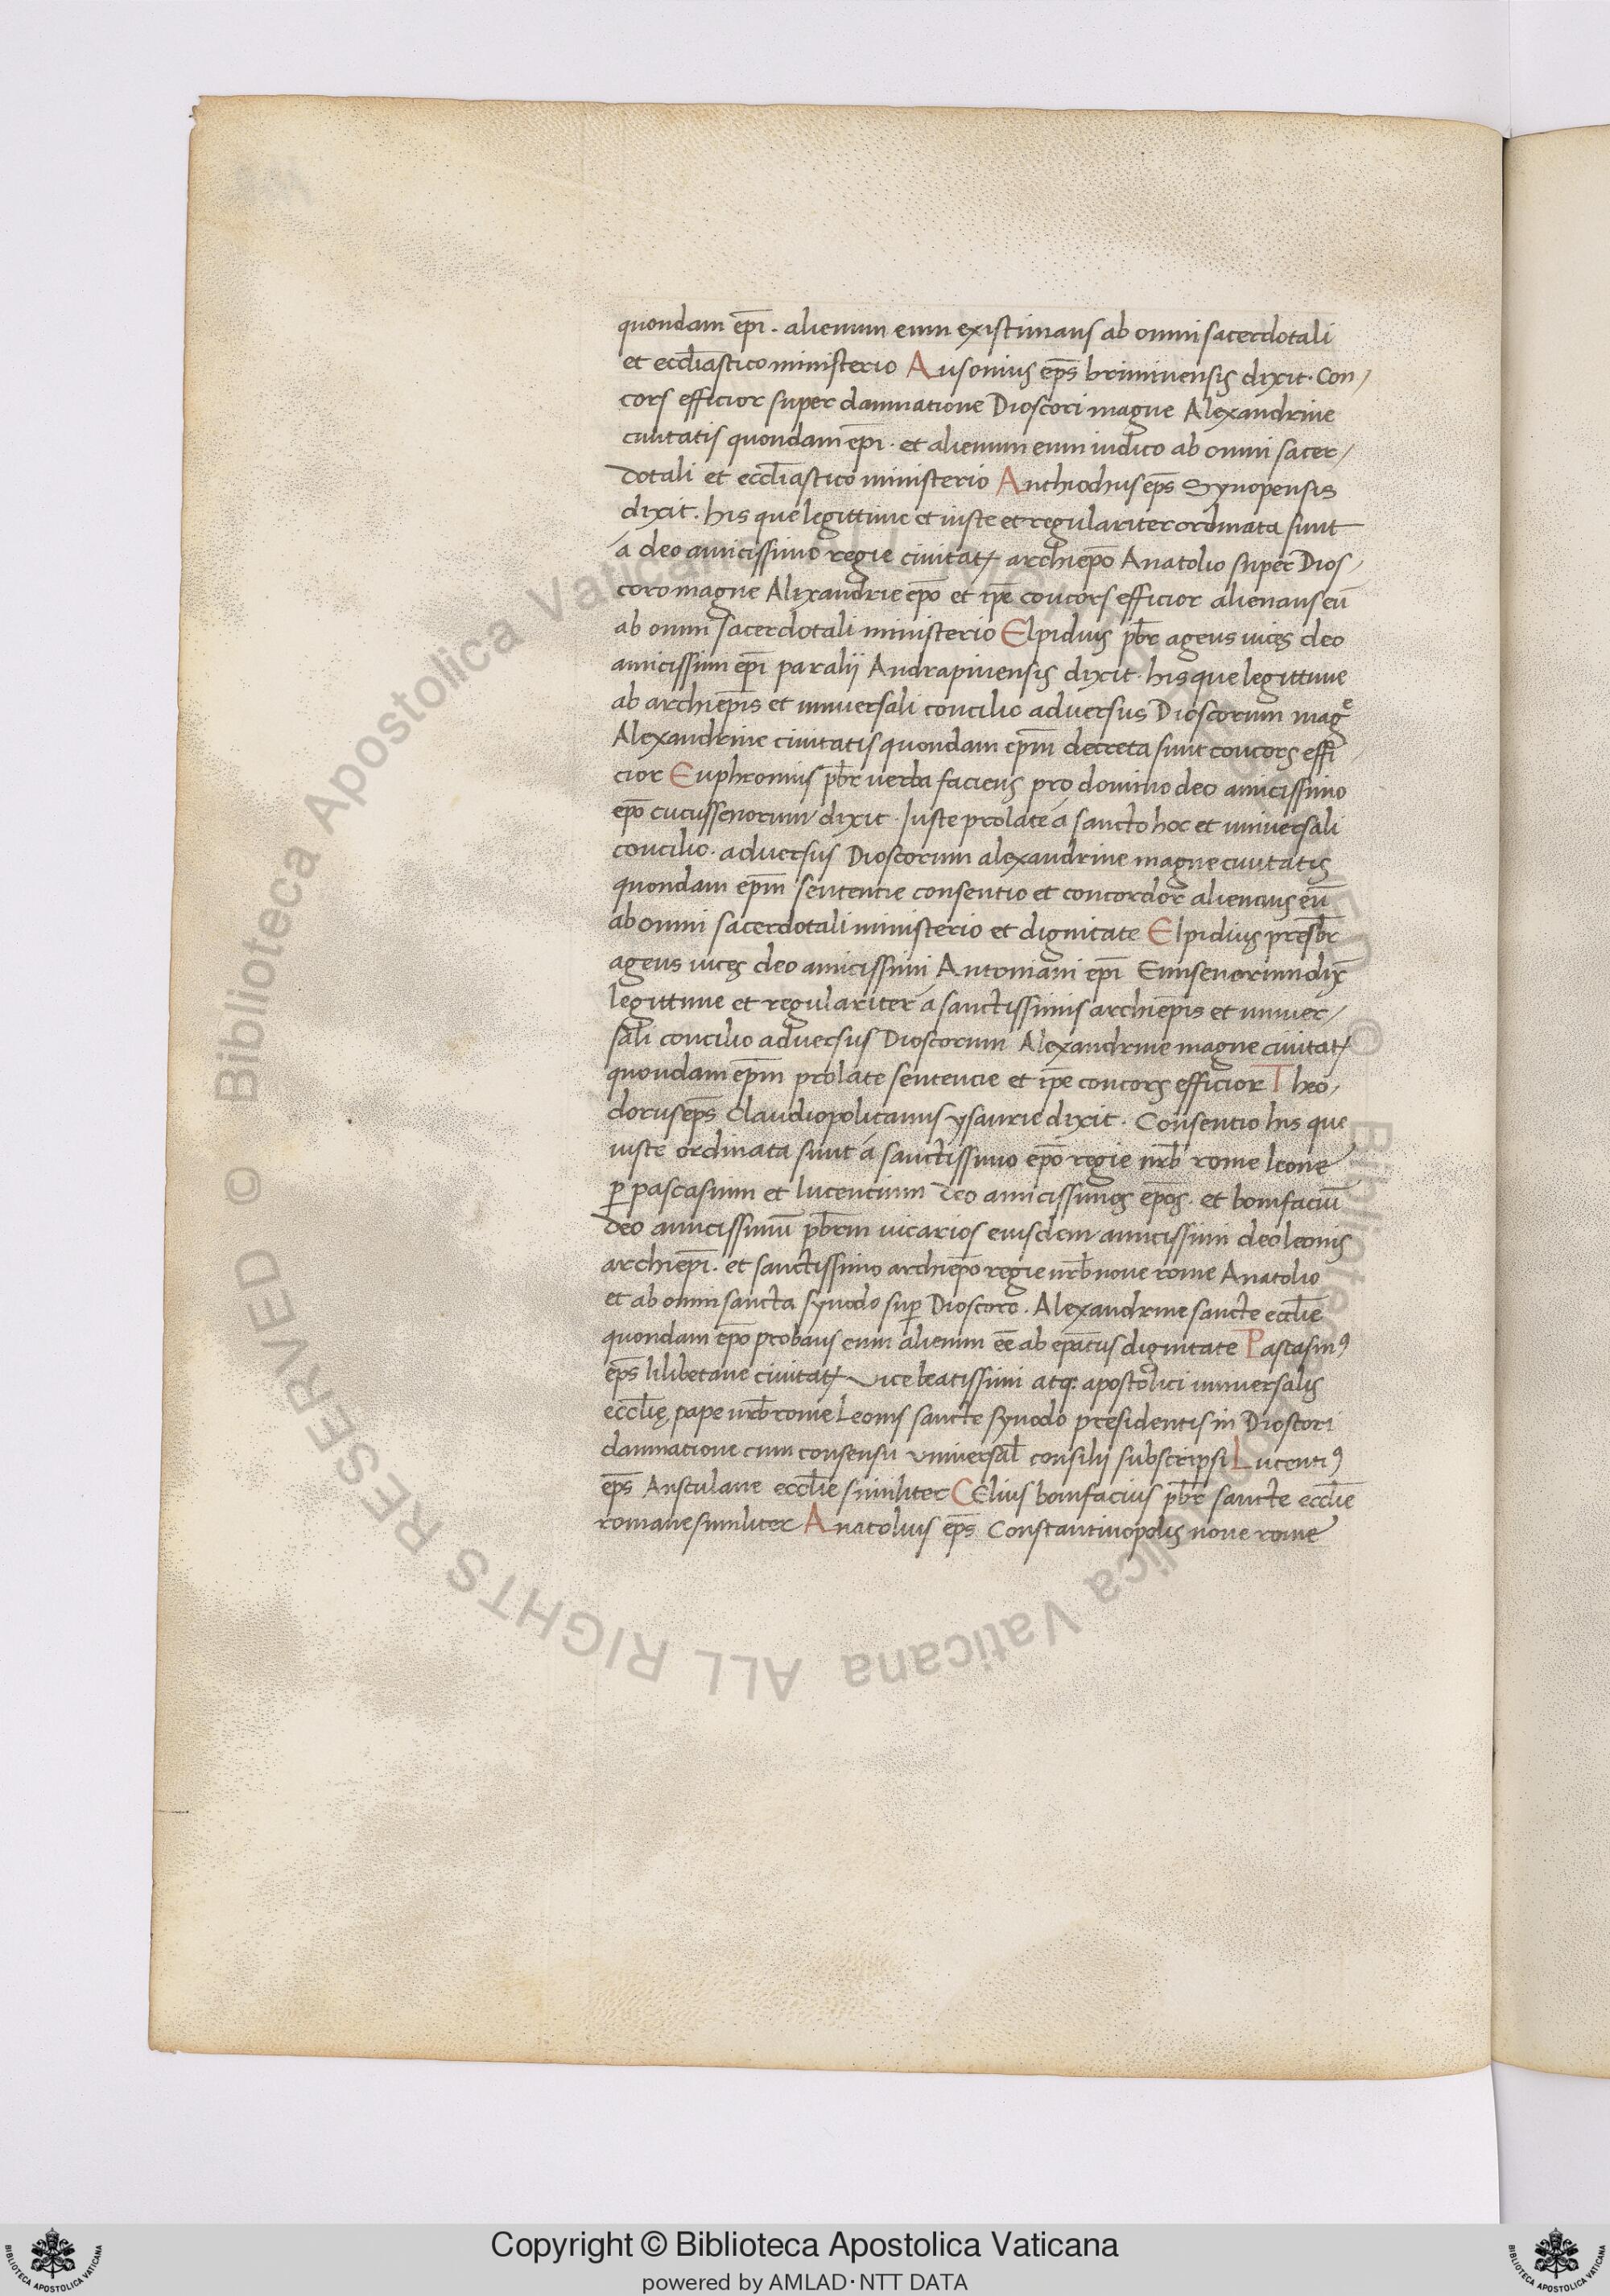 quondam ep̄i. alienum eum existimans ab omni sacerdotali
et eccl̄iastico ministerio Ausonius ep̄s briminensis dixit. Con/
cors efficior super damnatione Dioscori magne Alexandrine
ciuitatis quondam ep̄i. et alienum eum iudico ab omni sacer/
dotali et eccl̄iastico ministerio Anthiochus ep̄s Synopensis
dixit. his que legittime et iuste et regulariter ordinata sunt
á deo amicissimo regie ciuitatꝭ archiep̄o Anatolio super Dios/
coro magne Alixandrie ep̄o et ip̄e concors efficior alienans eū
ab omni sacerdotali ministerio Elpidius pb̄r agens uices deo
amicissimi ep̄i paralii Andrapinensis dixit. his que legittime
ab archiep̄is et uniuersali concilio aduersus Dioscorum magͤ
Alexandrine ciuitatis quondam ep̄m decreta sunt concors effi
cior Euphromius pb̄r uerba faciens pro domino deo amicissimo
ep̄o cucussenorum dixit. Iuste prolate á sancto hoc et uniuersali
concilio. aduersus Dioscorum alexandrine magne ciuitatis
quondam ep̄m sentencie consentio et concordor alienans eū
ab omni sacerdotali ministerio et dignitate Elpidius presb̄r
agens uices deo amicissimi Antoniani ep̄i Eunsenorum dix̄
legittime et regulariter á sanctissimis archiep̄is et uniuer/
sali concilio aduersus Dioscorum Alexandrine magne ciuitatꝭ
quondam ep̄m prolate sentencie et ip̄e concors efficior Theo/
dorus ep̄s Claudiopolitanus ysaurie dixit. Consentio his que
iuste ordinata sunt á sanctissimo ep̄o regie urb̄ rome leone
ꝑ pascasinum et lucentium deo amicissimos ep̄os. et bonifaciū
deo amicissimū pb̄rm uicarios eiusdem amicissimi deo leonis
archiep̄i. et sanctissimo archiep̄o regie urb̄ noue rome Anatolio
et ab omni sancta synodo suꝑ Dioscoro. Alexandrine sancte eccl̄ie
quondam ep̄o probans eum alienum ēe ab ep̄atus dignitate Pascasinꝰ
ep̄s lilibetane ciuitatꝭ vice beatissimi atq; apostolici uniuersalis
eccl̄ię pape urb̄ rome Leonis sancte synodo presidentis in Dioscori
damnatione cum consensu vniuersal̄ consilii subscripsi Lucentiꝰ
ep̄s Ansculane eccl̄ie similiter CElius bonifacius pb̄r sancte eccl̄ie
romane similiter Anatolius ep̄s Constantinopolis noue rome